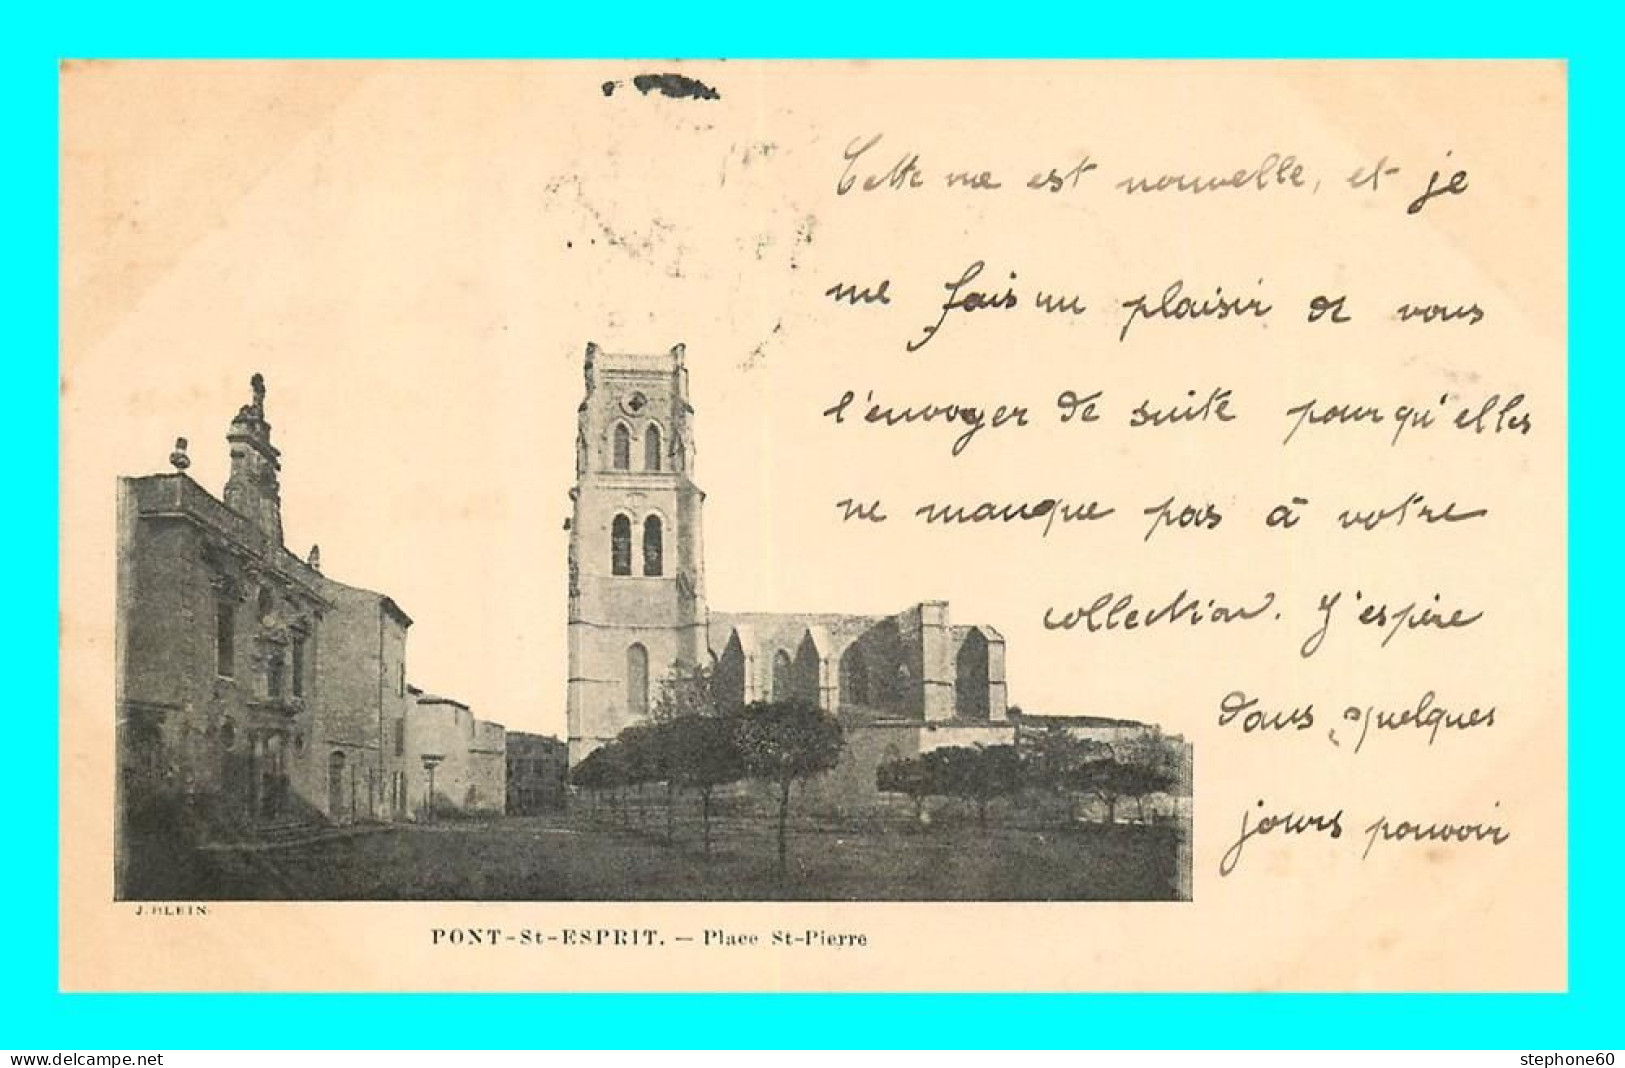 Cette vue est nouvelle, et je
me fais un plaisir de vous
l'envoyer de suite pour qu'elles
ne manque pas à votre
collection. J'espère
dans quelques
jours pouvoir
J. BLEIN.
PONT-St-ESPRIT. — Place St-Pierre
www.delcampe.net
stephone60